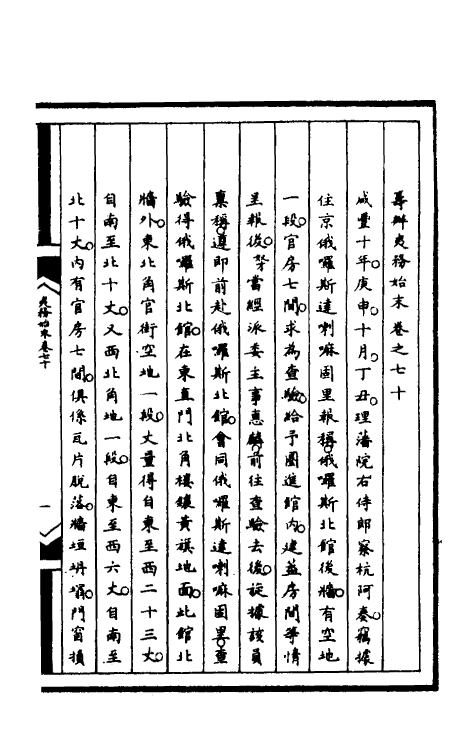 籌辦夷務始末卷之七十
咸豐十年。庚申。十月。丁丑。理藩院右侍郎察杭阿奏。竊據
住京俄囉斯達喇嘛固里報稱。俄囉斯北館後牆。有空地
一段。官房七間。求為查驗。給予圈進館內。建蓋房間等情
呈報後。奴才當經派委主事惠麟。前往查驗去後。旋據該員
稟稱。遵即前赴俄囉斯北館。會同俄囉斯達喇嘛固里。查
驗得俄囉斯北館。在東直門北角樓鑲黃旗地面。此館北
牆外。東北角官街空地一段。丈量得自東至西二十三丈。
自南至北十丈。又西北角地一段。自東至西六丈。自南至
北十丈。內有官房七間。俱係瓦片脫落。牆垣坍塌。門窗損
夷務始末卷七十
一